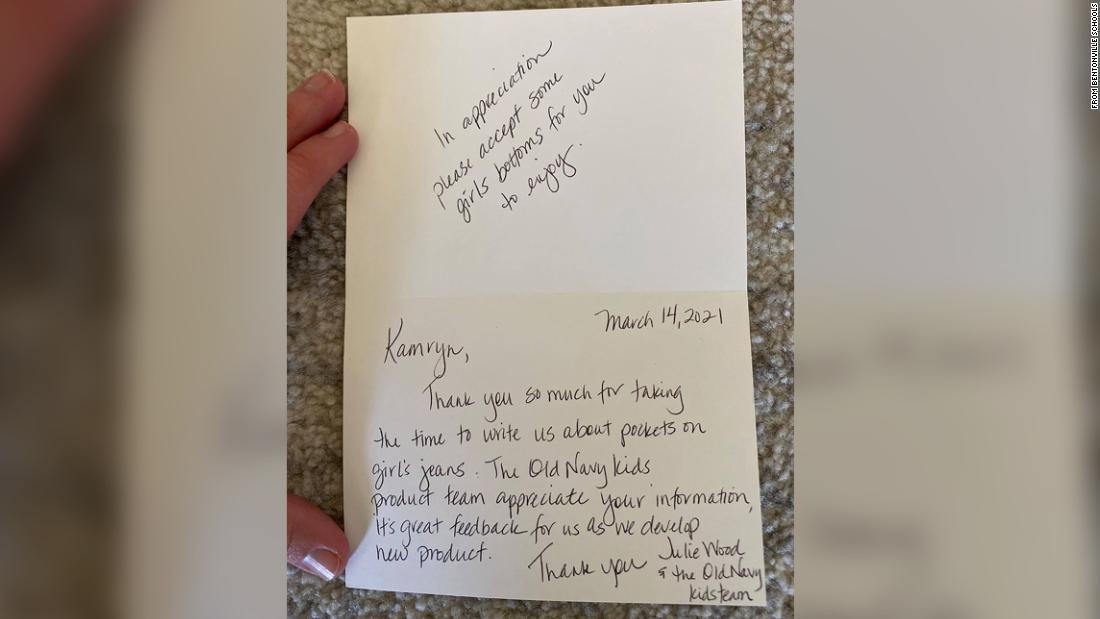 In appreciation
please accept some
girls bottoms for you
to enjoy.
March 14, 2021
Kamryn,
Thank you so much for taking
the time to write us about pockets on
girl's jeans. The Old Navy kids
product team appreciate your information,
it's great feedback for us as we develop
new product.
Thank you
Julie Wood
& the Old Navy
kids team
FROM BENTONVILLE SCHOOLS